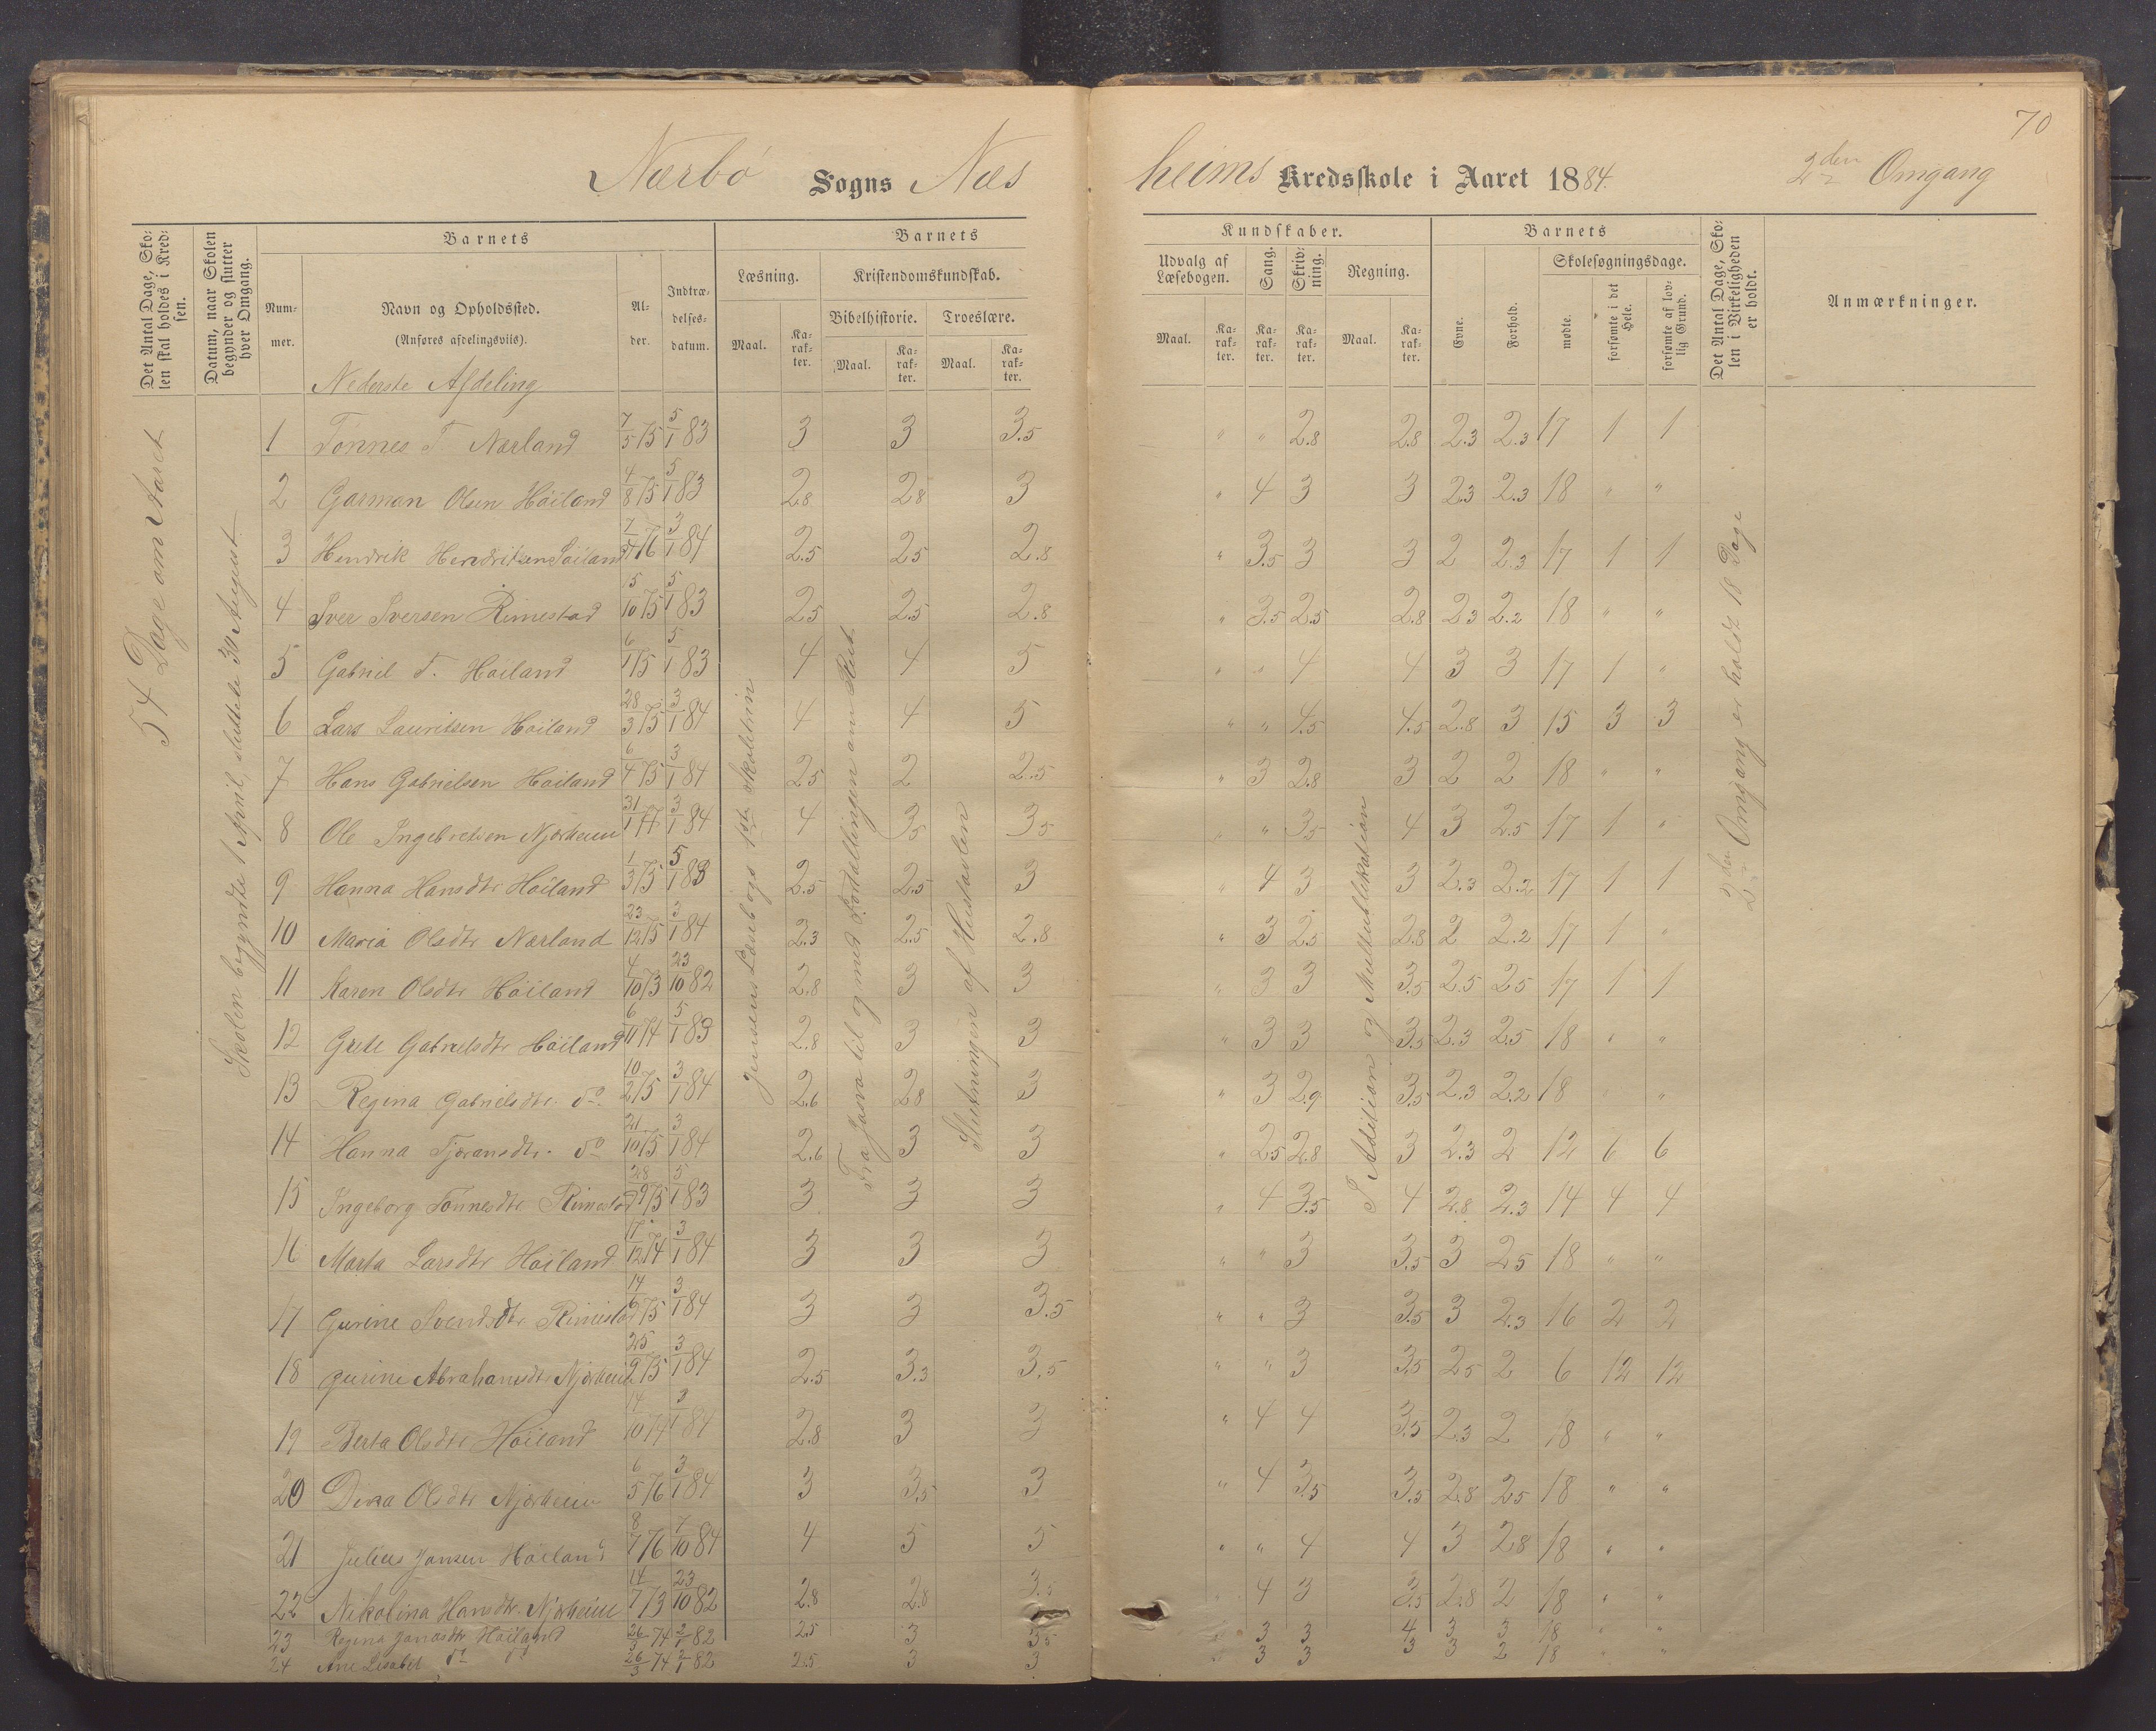 70
Nærbö Sogns Næs heims Kredsskole i Aaret 1884. 2den Omgang
Det Antal Dage, Skolen skal holdes i Kredsen.
Datum, naar Skolen begynder og slutter hver Omgang.
Barnets
Nummer.
Navn og Opholdssted.
(Anføres afdelingsvis).
Alder.
Indtrædelsesdatum.
Barnets Kundskaber.
Læsning.
Maal. Karakter.
Kristendomskundskab.
Bibelhistorie. Troeslære.
Maal. Karakter. Maal. Karakter.
Udvalg af Læsebogen.
Maal. Karakter.
Sang. Karakter.
Skrivning. Karakter.
Regning.
Maal. Karakter.
Barnets
Evne. Forhold.
Skolesøgningsdage.
mødte. forsømte i det Hele. forsømte af lovlig Grund.
Det Antal Dage, Skolen i Virkeligheden er holdt.
Anmærkninger.
Nederste Afdeling
54 Dage om Aaret
Skolen begyndte 1 April, sluttede 30 August
Jensens Læsebogs 1ste Skoletrin
Fra Josva til og med Fortællingen om Rut
Slutningen af Hustavlen
I Adition og Multiblikation
2den Omgang er holdt 18 Dage
1 Tönnes T Nærland 7/5 75 5/1 83 3 3 3.5 " " 2.8 2.8 2.3 2.3 17 1 1
2 Garman Olsen Höiland 4/8 75 5/1 83 2.8 2.8 3 " 4 3 3 2.3 2.3 18 " "
3 Hendrik Hendriksen Höiland 76 3/1 84 2.5 2.5 2.8 " 3.5 3 3 2 2.3 17 1 1
4 Iver Iversen Rimestad 5/10 75 5/1 83 2.5 2.5 2.8 " 3.5 2.5 2.8 2.3 2.2 18 " "
5 Gabriel T. Höiland 6/1 75 5/1 83 4 4 5 " " 4 4 3 3 17 1 "
6 Lars Lauritsen Höiland 28/3 75 3/1 84 4 4 5 " " 4.5 4.5 2.8 3 15 3 3
7 Hans Gabrielsen Höiland 6/4 75 3/1 84 2.5 2 2.5 " 3 2.8 3 2 2 18 " "
8 Ole Ingebretsen Njærheim 31/1 3/1 84 4 3.5 3.5 " " 3.5 4 3 2.5 17 1 "
9 Hanna Hansdtr Höiland 1/3 75 5/1 83 2.5 2.5 3 " 4 3 3 2.3 2.2 17 1 1
10 Maria Olsdtr Nærland 23/12 75 3/1 84 2.3 2.5 2.8 " 3 2.5 2.8 2 2.2 17 1 "
11 Karen Olsdtr Höiland 4/10 73 23/10 82 2.8 3 3 " 3 3 3.5 2.5 2.5 17 1 1
12 Grete Gabrielsdtr Höiland 6/11 74 5/1 83 2.8 3 3 " 3 3 3.5 2.3 2.5 18 " "
13 Regina Gabrielsdtr. do. 10/2 75 3/1 84 2.6 2.8 3 " 3 2.9 3.5 2.3 2.2 18 " "
14 Hanna Tjöransdtr. do 21/10 75 3/1 84 2.6 3 3 " 2.5 2.8 3 2.3 2 12 6 6
15 Ingeborg Tönnesdtr Rimestad 28/9 75 5/1 83 3 3 3 " 4 3.5 4 2.8 2.3 14 4 4
16 Marta Larsdtr Höiland 17/12 74 3/1 84 3 3 3 " " 3 3.5 3 2.5 18 " "
17 Gurine Svendsdtr Rimestad 14/6 75 3/1 84 3 3 3.5 " " 3 3.5 3 2.3 16 2 2
18 Gurine Abrahamsdtr Njærheim 25/9 75 3/1 84 2.5 3.3 3.5 " " 3 3.5 2.5 2 6 12 12
19 Berta Olsdtr Höiland 14/10 74 3/1 84 2.8 3 3 " 4 4 3.5 2.3 2 18 " "
20 Dina Olsdtr Njærheim 6/5 76 3/1 84 3 3.5 3 " 4 3.5 3.5 2.8 2.5 18 " "
21 Julius Jansen Höiland 8/7 76 7/10 84 4 5 5 " " 4 4 3 2.8 18 " "
22 Nikolina Hansdtr. Njærheim 14/7 73 23/10 82 2.8 2.8 3.5 4 3 3.5 2.8 2 18 " "
23 Regina Jonasdtr Höiland 26/3 74 2/1 82 2.5 3 3.5 3 3 4 3 3 18 " "
24 Ane Lisabet do do 26/3 74 2/1 82 2.5 3 3 3 3 3 3 2 18 " "